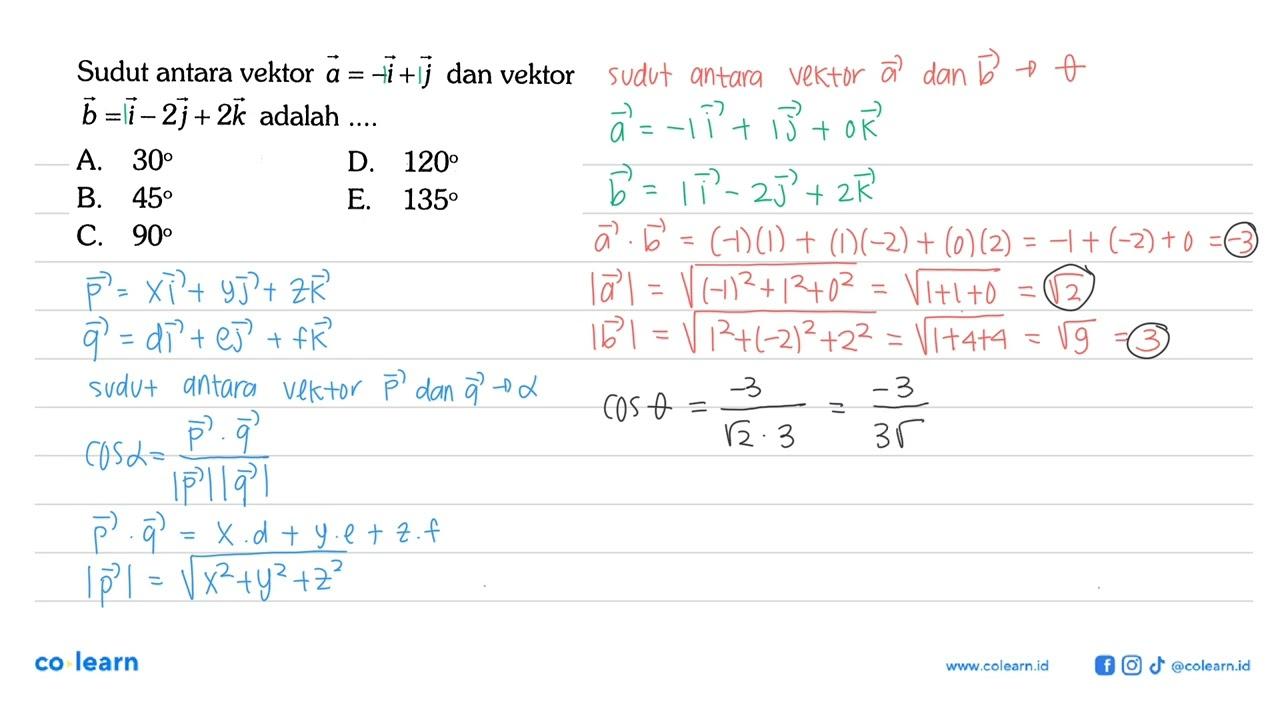 Sudut antara vektor a⃗ = -1i⃗ + 1j⃗ dan vektor
b⃗ = 1i⃗ - 2j⃗ + 2k⃗ adalah ....
A. 30° D. 120°
B. 45° E. 135°
C. 90°
p⃗ = xi⃗ + yj⃗ + zk⃗
q⃗ = di⃗ + ej⃗ + fk⃗
sudut antara vektor p⃗ dan q⃗ → α
cos α = p⃗ . q⃗ / |p⃗| |q⃗|
p⃗ . q⃗ = x.d + y.e + z.f
|p⃗| = √(x² + y² + z²)
sudut antara vektor a⃗ dan b⃗ → θ
a⃗ = -1i⃗ + 1j⃗ + 0k⃗
b⃗ = 1i⃗ - 2j⃗ + 2k⃗
a⃗ . b⃗ = (-1)(1) + (1)(-2) + (0)(2) = -1 + (-2) + 0 = -3
|a⃗| = √((-1)² + 1² + 0²) = √(1+1+0) = √2
|b⃗| = √(1² + (-2)² + 2²) = √(1+4+4) = √9 = 3
cos θ = -3 / √2 . 3 = -3 / 3√
co learn
www.colearn.id @colearn.id